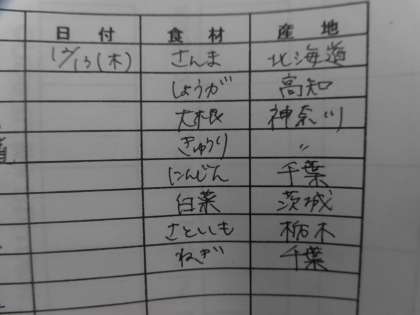 日付 食材 産地
12/13(木) さんま 北海道
しょうが 高知
大根 神奈川
きゅうり 〃
にんじん 千葉
白菜 茨城
さといも 栃木
ねぎ 千葉